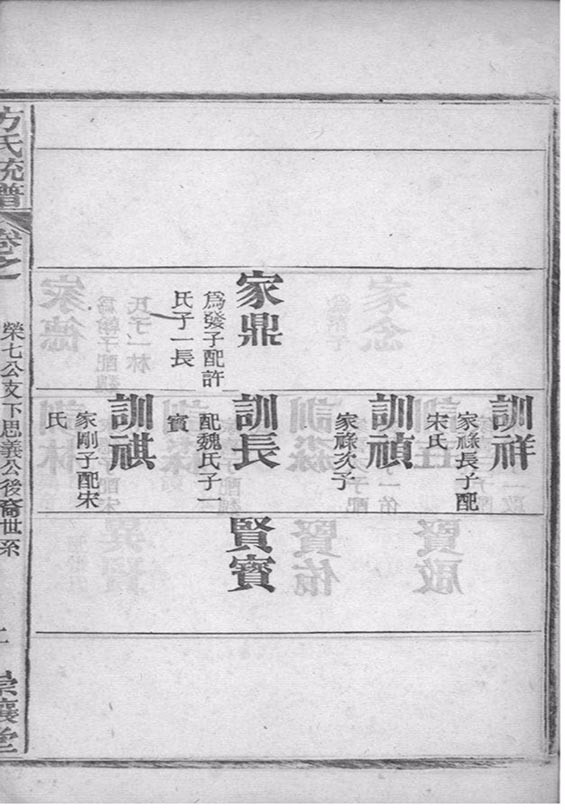 家鼎
爲發子配許
氏子一長
訓祥
家祿長子配
宋氏
訓禎
家祿次子
訓長
配魏氏子一
賓
訓祺
家剛子配宋
氏
賢賓
方氏統譜
卷之
榮七公支下思義公後裔世系
堂